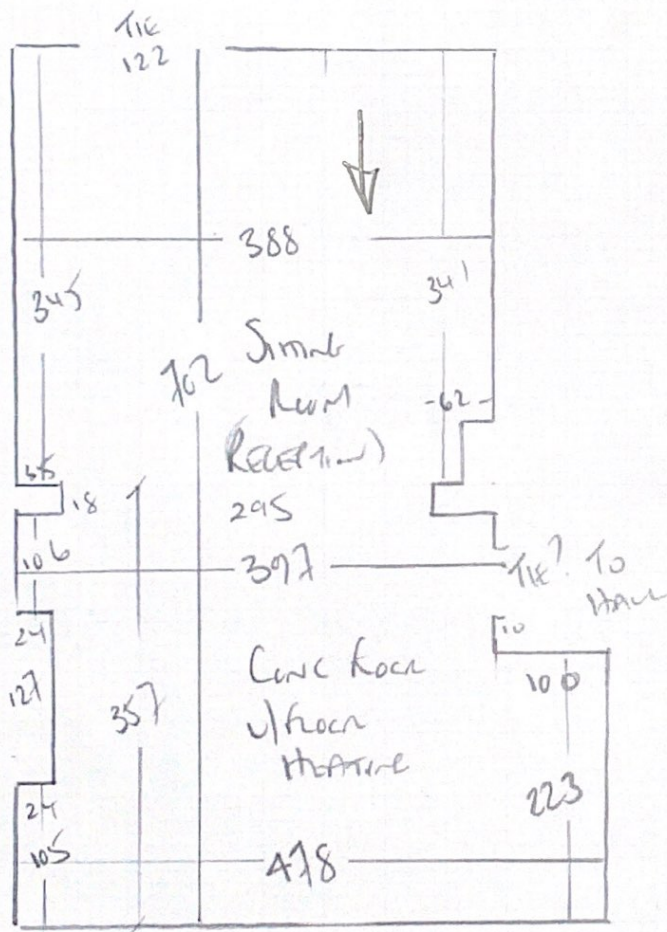 TIE
122
388
345
341
702
SITTING
ROOM
(RECEPTION)
295
62
35
18
106
397
TIE? TO
HALL
24
10
127
357
CONC FLOOR
U/FLOOR
HEATING
100
223
24
105
478